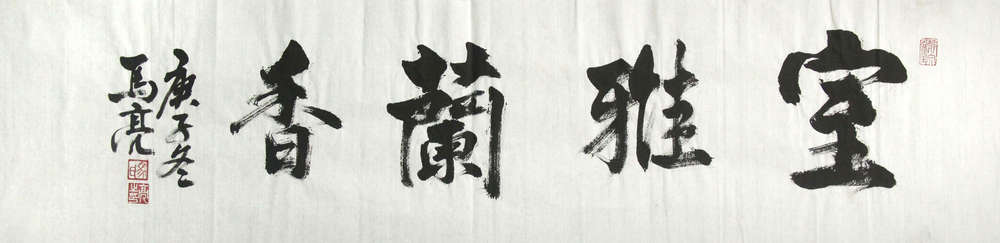 室雅蘭香
庚子冬
馬亮